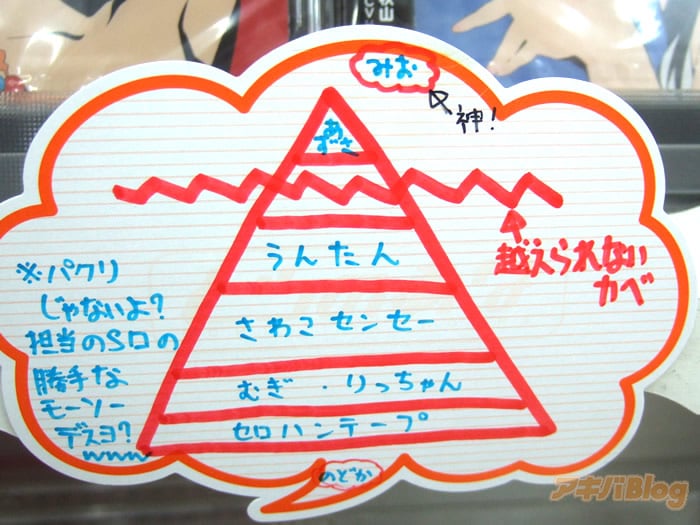 みお
神!
あずさ
うんたん
越えられない
カベ
さわこセンセー
むぎ・りっちゃん
セロハンテープ
のどか
※パクリ
じゃないよ?
担当のSロの
勝手な
モーソー
デスヨ?
wwww
アキバBlog